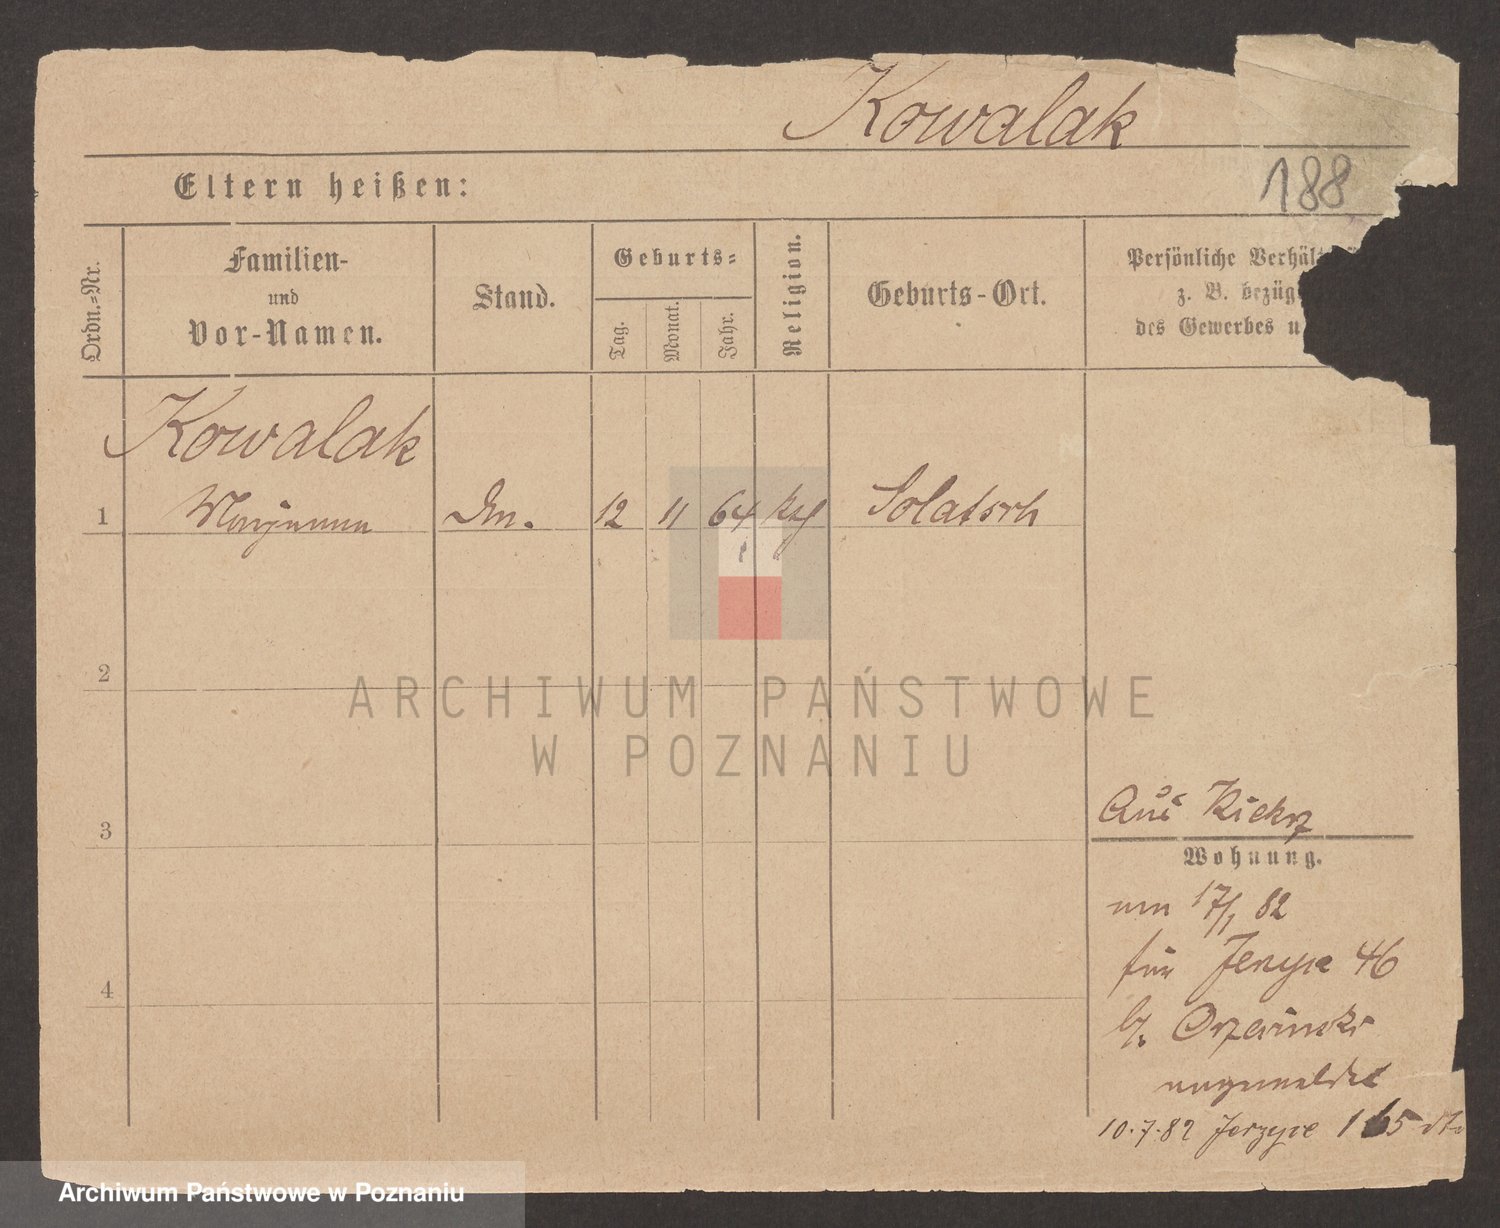 Kowalak
188
Eltern heißen:
Ordn.-Nr.
Familien-
und
Vor-Namen.
Stand.
Geburts-
Tag.
Monat.
Jahr.
Religion.
Geburts-Ort.
Persönliche Verhält
z. B. bezüg
des Gewerbes u
Kowalak
1 Marjanna Dm. 12 11 64 kth Solatsch
2
3
4
Aus Kiekrz
Wohnung.
am 17/1 82
für Jerzyce 46
b/.
angemeldet
10.7.82 Jerzyce 165
ARCHIWUM PAŃSTWOWE
W POZNANIU
Archiwum Państwowe w Poznaniu